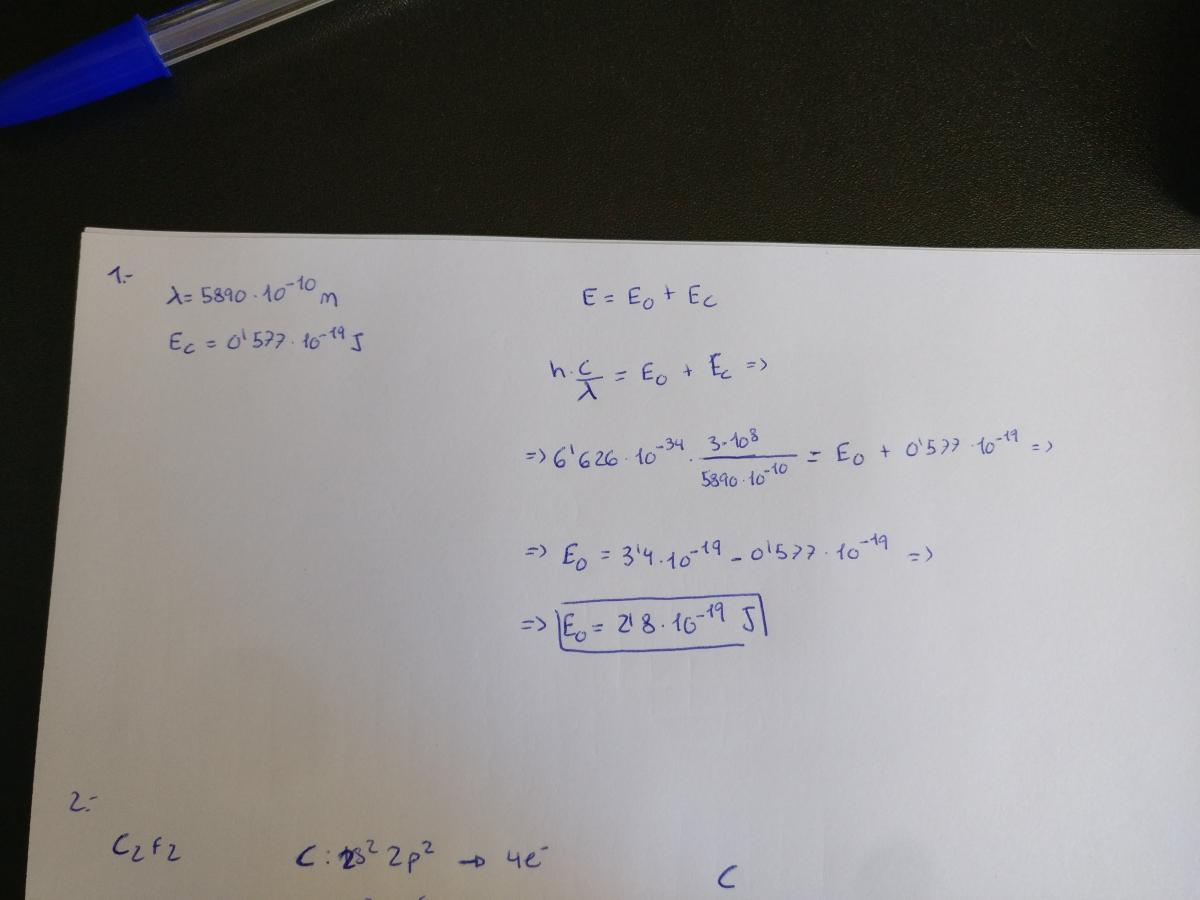 1.-
λ = 5890 · 10⁻¹⁰ m
E_C = 0'577 · 10⁻¹⁹ J
E = E₀ + E_C
h · C/λ = E₀ + E_C =>
=> 6'626 · 10⁻³⁴ · (3 · 10⁸)/(5890 · 10⁻¹⁰) = E₀ + 0'577 · 10⁻¹⁹ =>
=> E₀ = 3'4 · 10⁻¹⁹ - 0'577 · 10⁻¹⁹ =>
=> E₀ = 2'8 · 10⁻¹⁹ J
2.-
C₂F₂ C: 2s² 2p² → 4e⁻
C